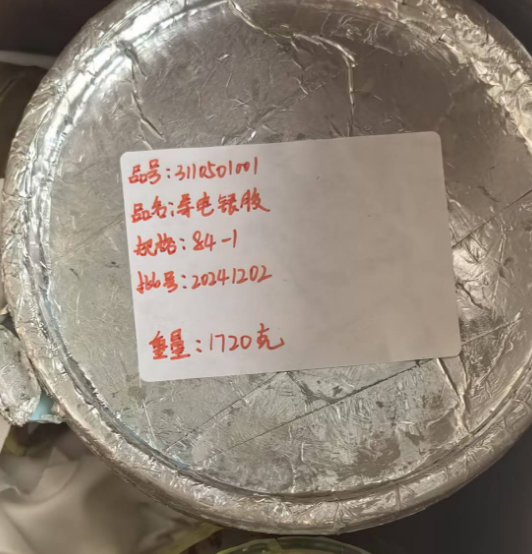 品号:3110501001
品名:导电银胶
规格:84-1
批号:20241202
重量:1720克